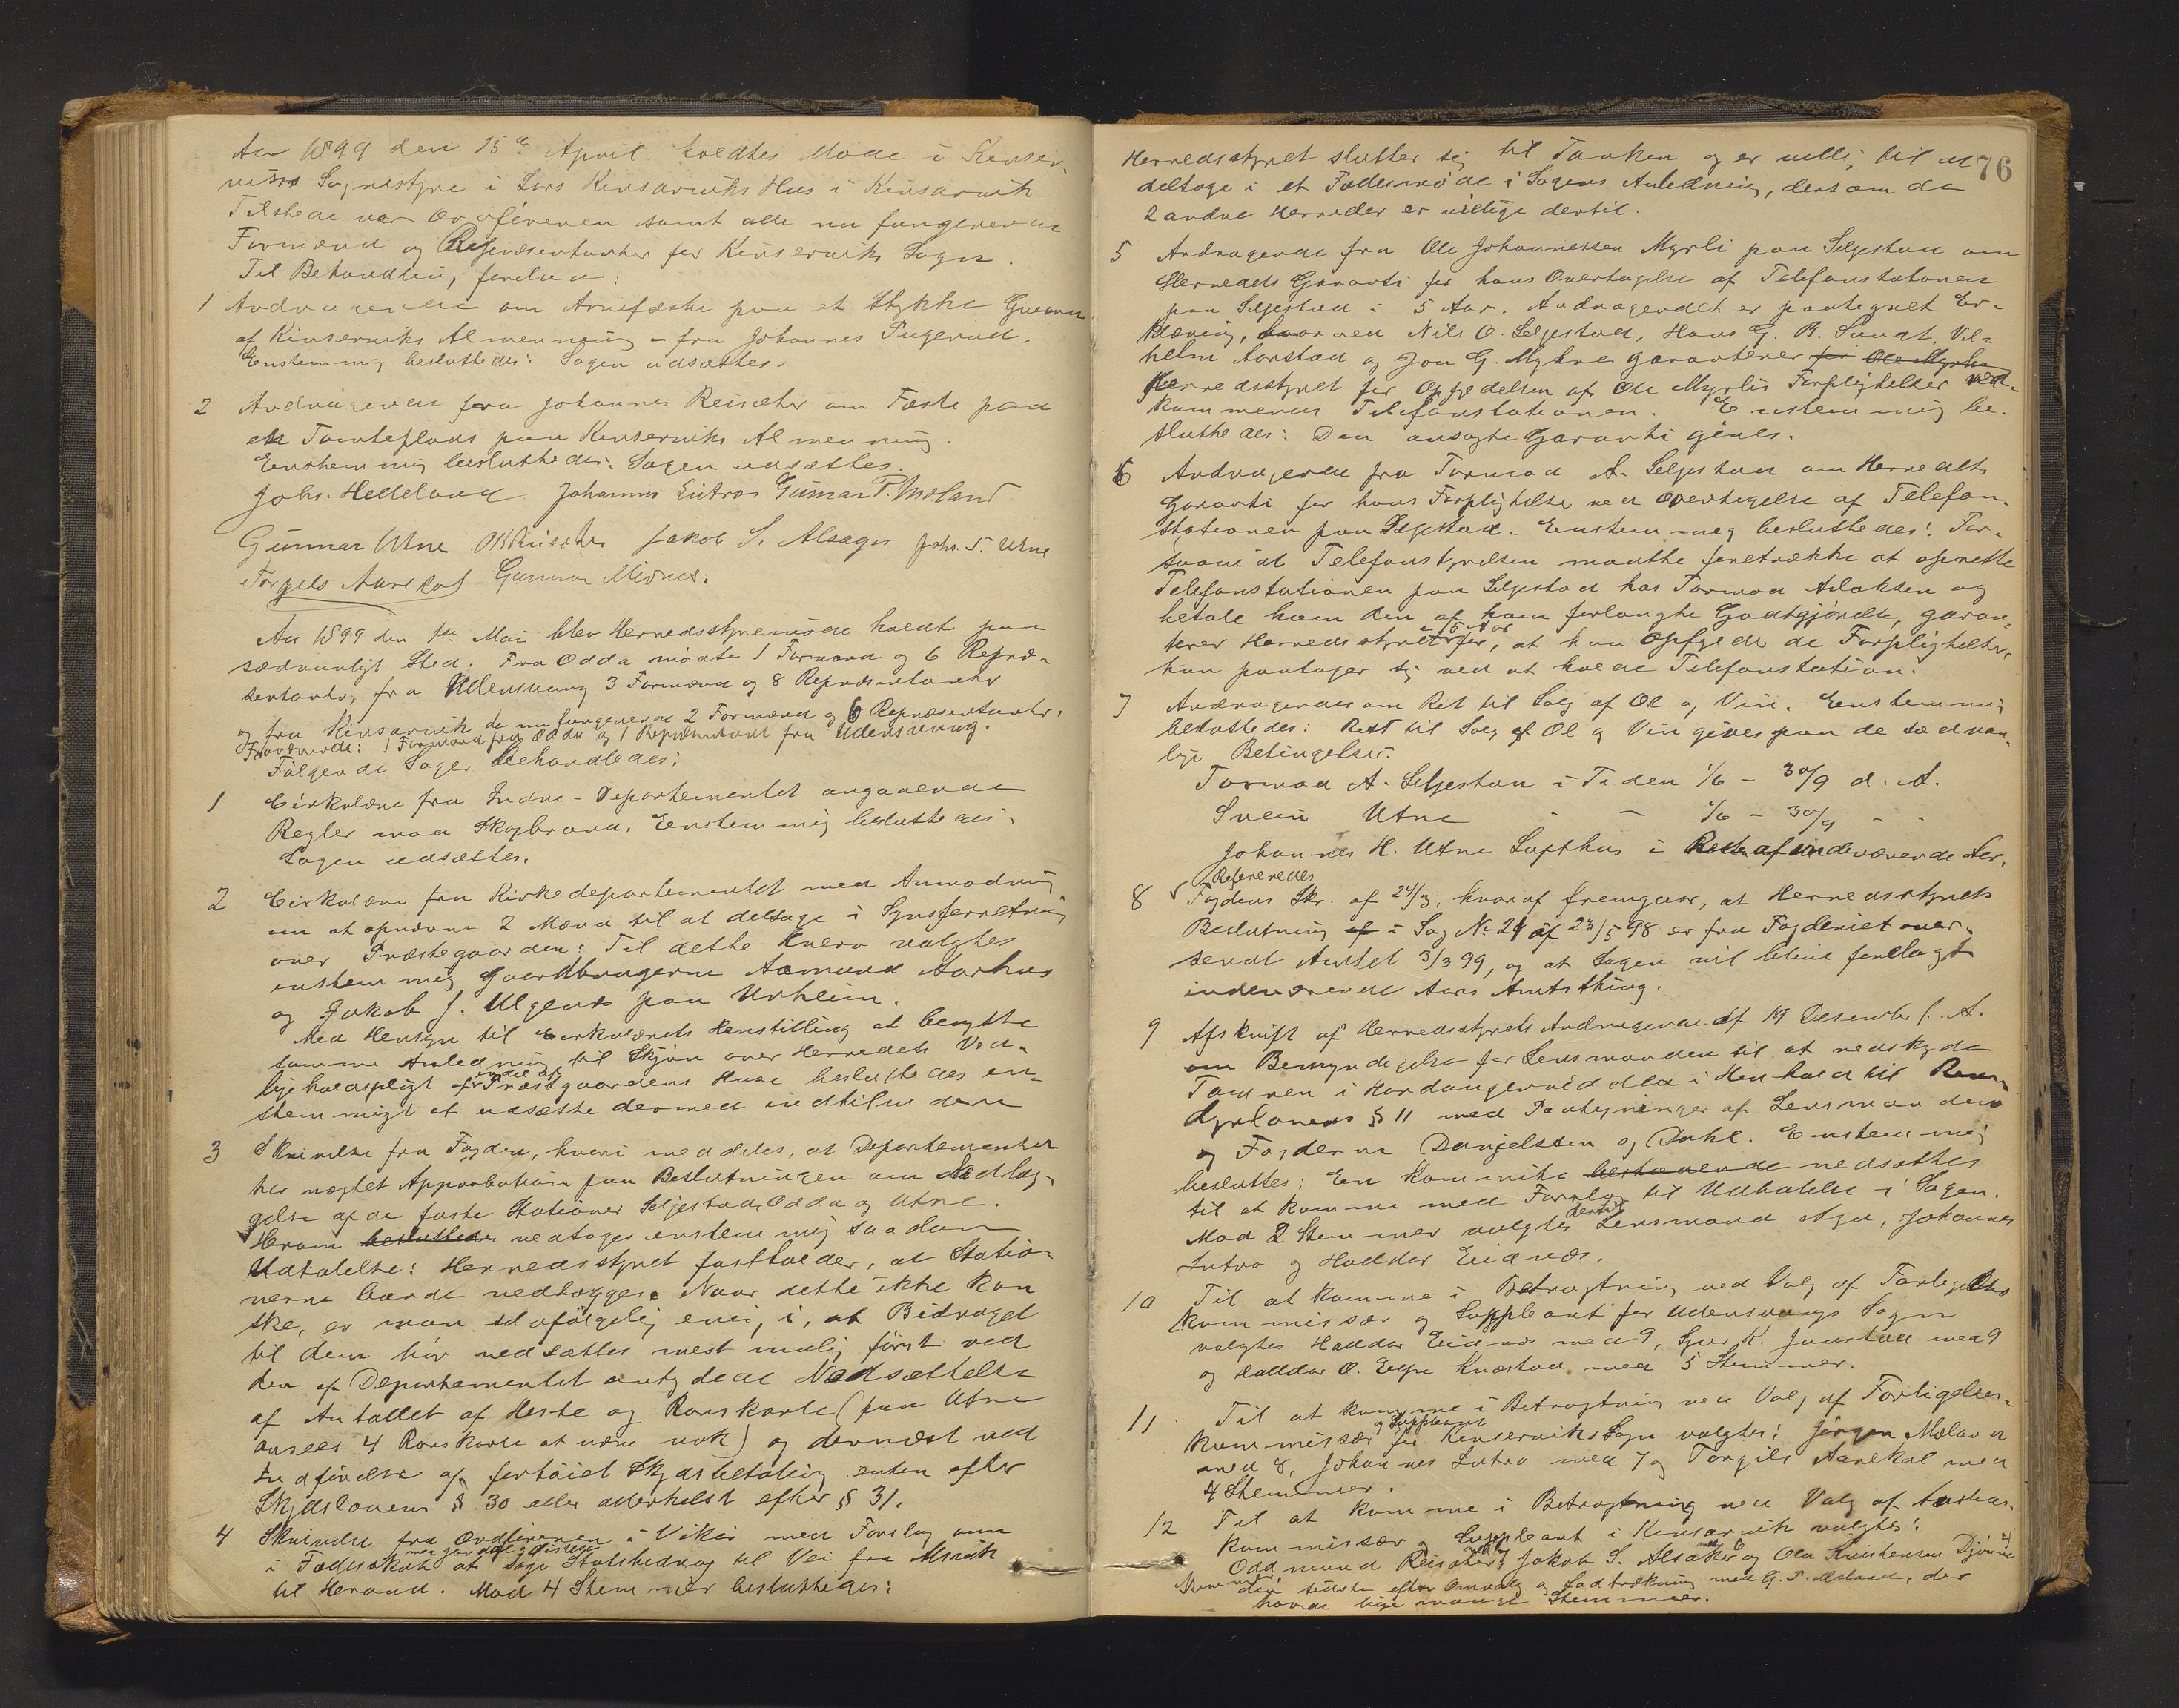 Aar 1899 den 15de April holdtes Møde i Kinser-
viks Sognestyre i Lars Kinsarviks Hus i Kinsarvik.
Tilstede var Ordføreren samt alle nu fungerende
Formænd og Repræsentanter for Kinserviks Sogn.
Til Behandling forelaa:
1 Andragende om Arvefæste paa et Stykke Grund
af Kinserviks Almenning – fra Johannes
Enstemmig besluttedes: Sagen udsættes.
2 Andragende fra Johannes Reisæter om Fæste paa
en Tomteplads paa Kinserviks Almenning.
Enstemmig besluttedes: Sagen udsættes.
Johs. Helleland Johannes Lutro Gunnar T. Mæland
Gunnar Utne Jakob S. Alsager Johs. T. Utne
Torgils Aarekol Gunnar Midnes.
Aar 1899 den 1ste Mai blev Herredsstyremøde holdt paa
sædvanligt Sted. Fra Odda mødte 1 Formand og 6 Repræ-
sentanter, fra Ullensvang 3 Formænd og 8 Repræsentanter
og fra Kinsarvik de nu fungerende 2 Formænd og 6 Repræsentanter.
Fraværende: 1 Formand fra Odda og 1 Repræsentant fra Udensvang.
Følgende Sager behandledes:
1 Cirkulære fra Indre-Departementet angaaende
Regler mod Skogbrand. Enstemmig besluttedes:
Sagen udsættes.
2 Cirkulære fra Kirkedepartementet med Anmodning
om at opnævne 2 Mænd til at deltage i Synsforretning
over Præstegaarden: Til dette Hverv valgtes
enstemmig Gaardbrugerne Aamund Aarhus
og Jakob J. Ulgenes paa Urheim.
Med Hensyn til Cirkulærets Henstilling at benytte
samme Anledning til Skjøn over Herredets Ved-
ligeholdspligt af en del af Præstgaardens Huse besluttedes en-
stemmigt at udsætte dermed indtil videre
3 Skrivelse fra Fogden, hvori meddeles, at Departementet
har nægtet Approbation paa Beslutningen om Nedlæg-
gelse af de faste Stationer Seljestad, Odda og Utne.
Herom besluttedes vedtoges enstemmig saadan
Udtalelse: Herredsstyret fastholder, at Statio-
nerne burde nedlægges. Naar dette ikke kan
ske, er man selvfølgelig enig i, at Bidraget
til dem bør nedsættes mest mulig først ved
den af Departementet antydede Nedsættelse
af Antallet af Heste og Rorskarle (paa Utne
ansees 4 Rorskarle at være nok) og dernæst ved
Indførelse af forhøiet Skydsbetaling enten efter
Skydslovens § 30 eller allerhelst efter § 31.
4 Skrivelse fra Ordføreren i Vikør med Forslag om
i Fællesskab med Jondal og Visnes at søge Statsbidrag til Vei fra
til Herand. Mod 4 Stemmer besluttedes:
76
Herredsstyret slutter sig til Tanken og er villig til at
deltage i et Fællesmøde i Sagens Anledning, dersom de
2 andre Herreder er villige dertil.
5 Andragende fra Ole Johannessen Myrli paa Seljestad om
Herredets Garanti for hans Overtagelse af Telefonstationen
paa Seljestad i 5 Aar. Andragendet er paategnet Er-
klæring, hvorved Nils O. Seljestad, Hans G. B. Sundt, Vil-
helm Aarstad og Jon G. Mykre garanterer for Ole Myrlis
Herredsstyret for Opfyldelsen af Ole Myrlis Forpligtelser ved-
kommende Telefonstationen. Enstemmig be-
sluttedes: Den ansøgte Garanti gives.
6 Andragende fra Tormod A. Seljestad om Herredets
Garanti for hans Forpligtelse ved Overtagelse af Telefon-
stationen paa Seljestad. Enstemmig besluttedes: For-
saavidt Telefonstyrelsen maatte foretrække at oprette
Telefonstationen paa Seljestad hos Tormod Aslaksen og
betale ham den af ham forlangte Godtgjørelse, garan-
terer Herredsstyret i 5 Aar for, at han opfylder de Forpligtelser,
han paatager sig ved at holde Telefonstation.
7 Andragender om Ret til Salg af Øl og Vin. Enstemmig
besluttedes: Ret til Salg af Øl og Vin gives paa de sædvan-
lige Betingelser.
Tormod A. Seljestad i Tiden 1/6 – 30/9 d. A.
Svein Utne – – 1/6 – 30/9 – –
Johannes H. Utne Lofthus i Resten af indeværende Aar.
8 Refereredes Fogdens Skr. af 24/3, hvoraf fremgaar, at Herredsstyrets
Beslutning af i Sag No 21 af 23/5 98 er fra Fogderiet over-
sendt Amtet 3/3 99, og at Sagen vil blive forelagt
indeværende Aars Amtsthing.
9 Afskrift af Herredsstyrets Andragende af 19 Desember f. A.
om Bemyndigelse for Lensmanden til at nedskyde
Tamren i Hardangervidda i Henhold til Ren-
dyrlovens § 11 med Paategninger af Lensmanden
og Fogderne Danjelssen og Dahl. Enstemmig
besluttes: En Kommite bestaaende nedsættes
til at komme med Forslag til Udtalelse i Sagen.
Mod 2 Stemmer valgtes dertil Lensmand Aga, Johannes
Lutro og Haldor Eidnes.
10 Til at komme i Betragtning ved Valg af Forligelses
kommissær og Suppleant for Udensvangs Sogn
valgtes Haldor Eidnes med 9, Sjur K. Jaastad med 9
og Haldor O. Espe Knæstad med 5 Stemmer.
11 Til at komme i Betragtning ved Valg af Forligelses-
kommissær og Suppleant for Kinserviks Sogn valgtes: Jørgen Mæland
med 8, Johannes Lutro med 7 og Torgils Aarekol med
4 Stemmer.
12 Til at komme i Betragtning ved Valg af
kommissær og Suppleant i Kinsarvik valgtes:
Oddmund Reisæter med Jakob S. Alsaker med 6 og Ola Kristensen Djønne
Stemmer, den sidste efter Omvalg og Lodtrækning med G. T. Mæland, der
havde lige mange Stemmer.